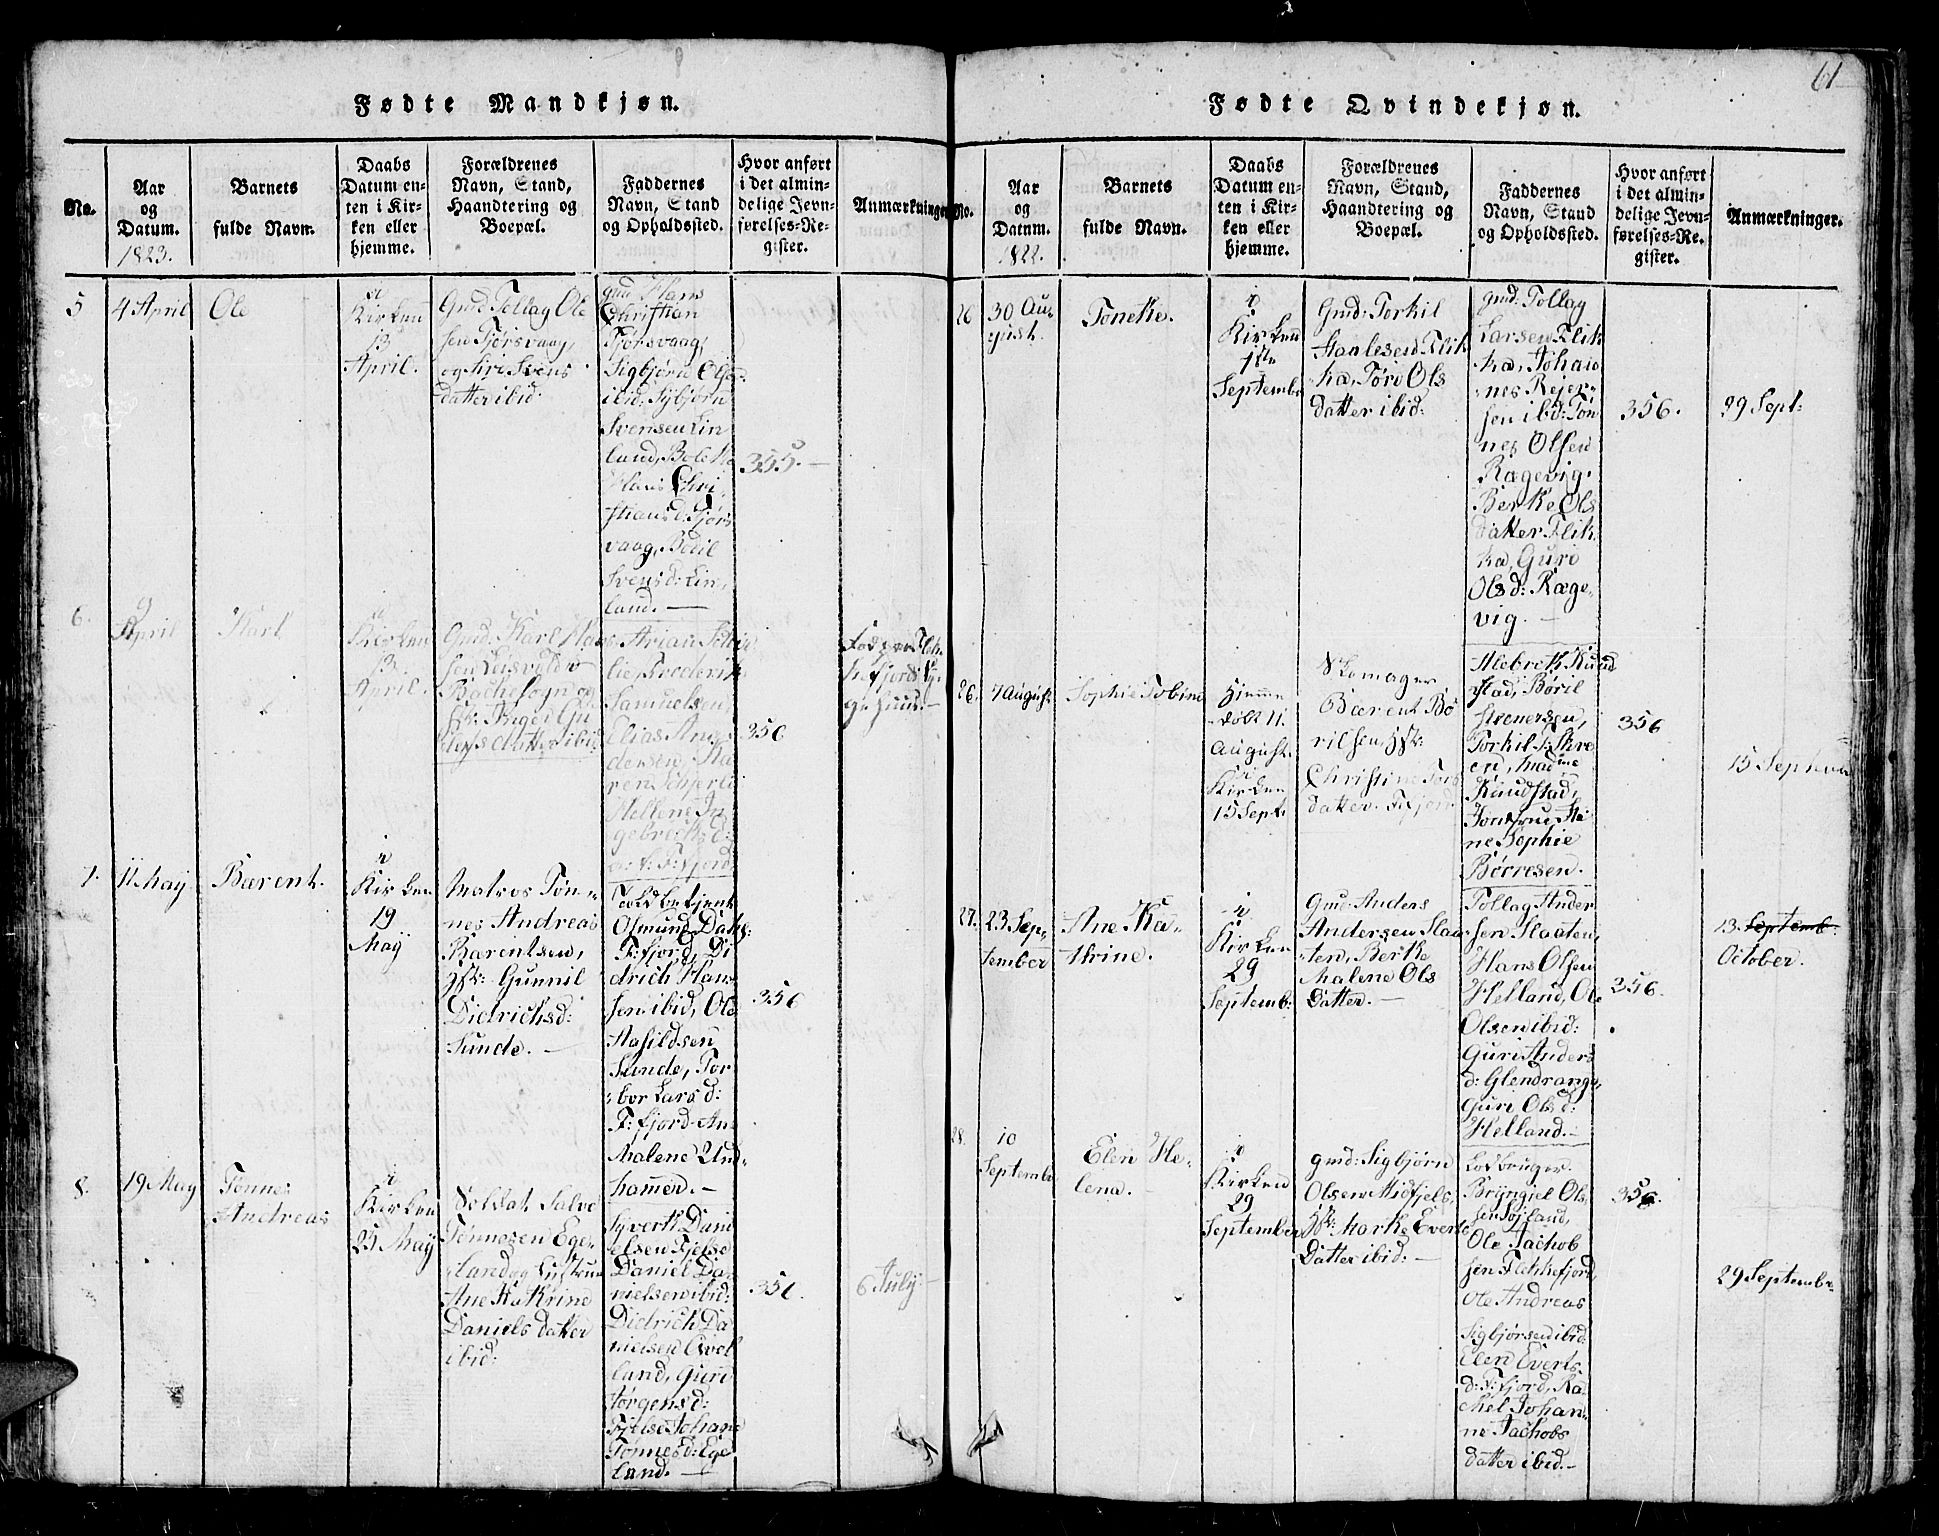 61
Fødte Mandkjøn.
No.
Aar
og
Datum.
1823.
Barnets
fulde Navn.
Daabs
Datum en-
ten i Kir-
ken eller
hjemme.
Forældrenes
Navn, Stand,
Haandtering og
Boepæl.
Faddernes
Navn, Stand
og Opholdssted.
Hvor anført
i det almin-
delige Jevn-
førelses-Re-
gister.
Anmærkninger
5
4 April
Ole
i
Kirken
13
April.
Gmd: Tollag Ole
sen Fjørsvaag,
og Siri Svens
datter ibid
gmd Hans
Christian
Fjørsvaag,
Sigbjørn Ols
ibid, Sybjørn
Svensen Lin
land, Bolette
Hans Chri
stians d: Fjørs
vaag, Bodil
Svensd: Lin,
land. —
355. —
6.
9
April
Karl
i
Kirken
13
April.
Gmd: Karl Han
sen
Bachesogn og
Inger
datter ibid
Samuelsen,
Elias An
dersen,
Hellene In
gebrecktsd:
F:fjord
356
7.
11 May
Bærent.
i
Kirken
19
May
Matros Tøn-
nes Andreas
Barentsen,
Hst: Gunnil
Didrichsd:
Sunde. —
Toldbetjent
Osmund Dahl
F:fjord, Di
drich Han-
sen ibid, Ole
Stasildsen
Sunde, Tor
bor Lars d:
F:fjord An
Malene Und-
hammen. —
356
8.
19 May
Tønnes
Andreas
i
Kirken
25 May
Soldat Salve
Tønnesen Ege-
land og Hustrue
Ane Katrine
Daniels datter
ibid:
Syvert Dani
elsen Fjelse
Daniel Da-
nielsen ibid:
Didrich Da
nielsen
land, Guri
Jørgens d:
Fjelse Johane
Tønnesd: Ege
land. —
356.
6 July —
Fødte Qvindekjøn.
No.
Aar
og
Datum.
1822.
Barnets
fulde Navn.
Daabs
Datum en-
ten i Kir-
ken eller
hjemme.
Forældrenes
Navn, Stand,
Haandtering og
Boepæl.
Faddernes
Navn, Stand
og Opholdssted.
Hvor anført
i det almin-
delige Jevn-
førelses-Re-
gister.
Anmærkninger.
30 Au-
gust.
Toneke.
i
Kirken
1ste
Septembr
Gmd: Torkil
Stanlesen Flik
ka, Tøre Ols
datter ibid:
gmd: Tollag
Larsen Flik
ka, Johan
nes Rejer-
sen ibid: Tøn
nes Olsen
Rægevig.
Berte Ols
datter Flik
ka, Guri
Ols d: Ræge-
vig. —
356.
29 Sept:
26.
7 August
Sophie Tobine
Hjemme
døbt 11.
August.
i
Kirken
15 Sept.
Skomager
Bærent Bø
rilsen, Hst:
Christine Tors
datter. F:fjord.
Alebrekt Knud
stad, Børil
Stenersen,
Torkil Skre
en, Madme
Knudstad,
Jomfrue Sti
ne Sophie
Børresen.
356
15 Septem
27.
23 Sep-
tember
Ane Ka-
thrine.
i
Kirken
29
Septemb:
Gmd: Anders
Andersen Slaa-
ten, Berte
Malene Ols
Datter. —
Tollag Ander
sen Slaaten,
Hans Olsen
Helland, Ole
Olsen ibid:
Guri Anders
d: Glendrange,
Guri Ols d:
Helland. —
356.
13. Septemb:
October.
28.
10
Septembr
Elen He-
lena. —
i
Kirken
29
September
gmd: Sigbjørn
Olsen Midfjels,
Hst: Marte Everts
Datter ibid: —
Lodbruger.
Bryngiel Ols
sen Søyland,
Ole Jachob
sen Flekkefjord,
Ole Andreas
Sigbjørsen ibid
Elen Everts
d: F:fjord, Ra-
chel Johan-
ne Jachobs
datter ibid. —
356.
29 Septembr